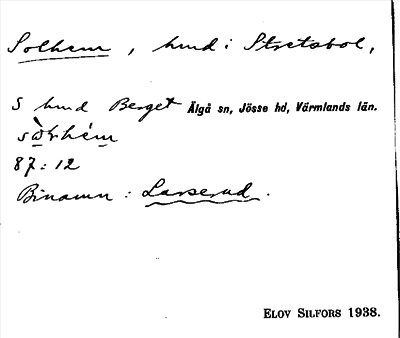 Solhem, hmd i Stretsbol,
S hmd Berget Älgå sn, Jösse hd, Värmlands län.
sòlhém
87:12
Binamn: Larserud.
ELOV SILFORS 1938.